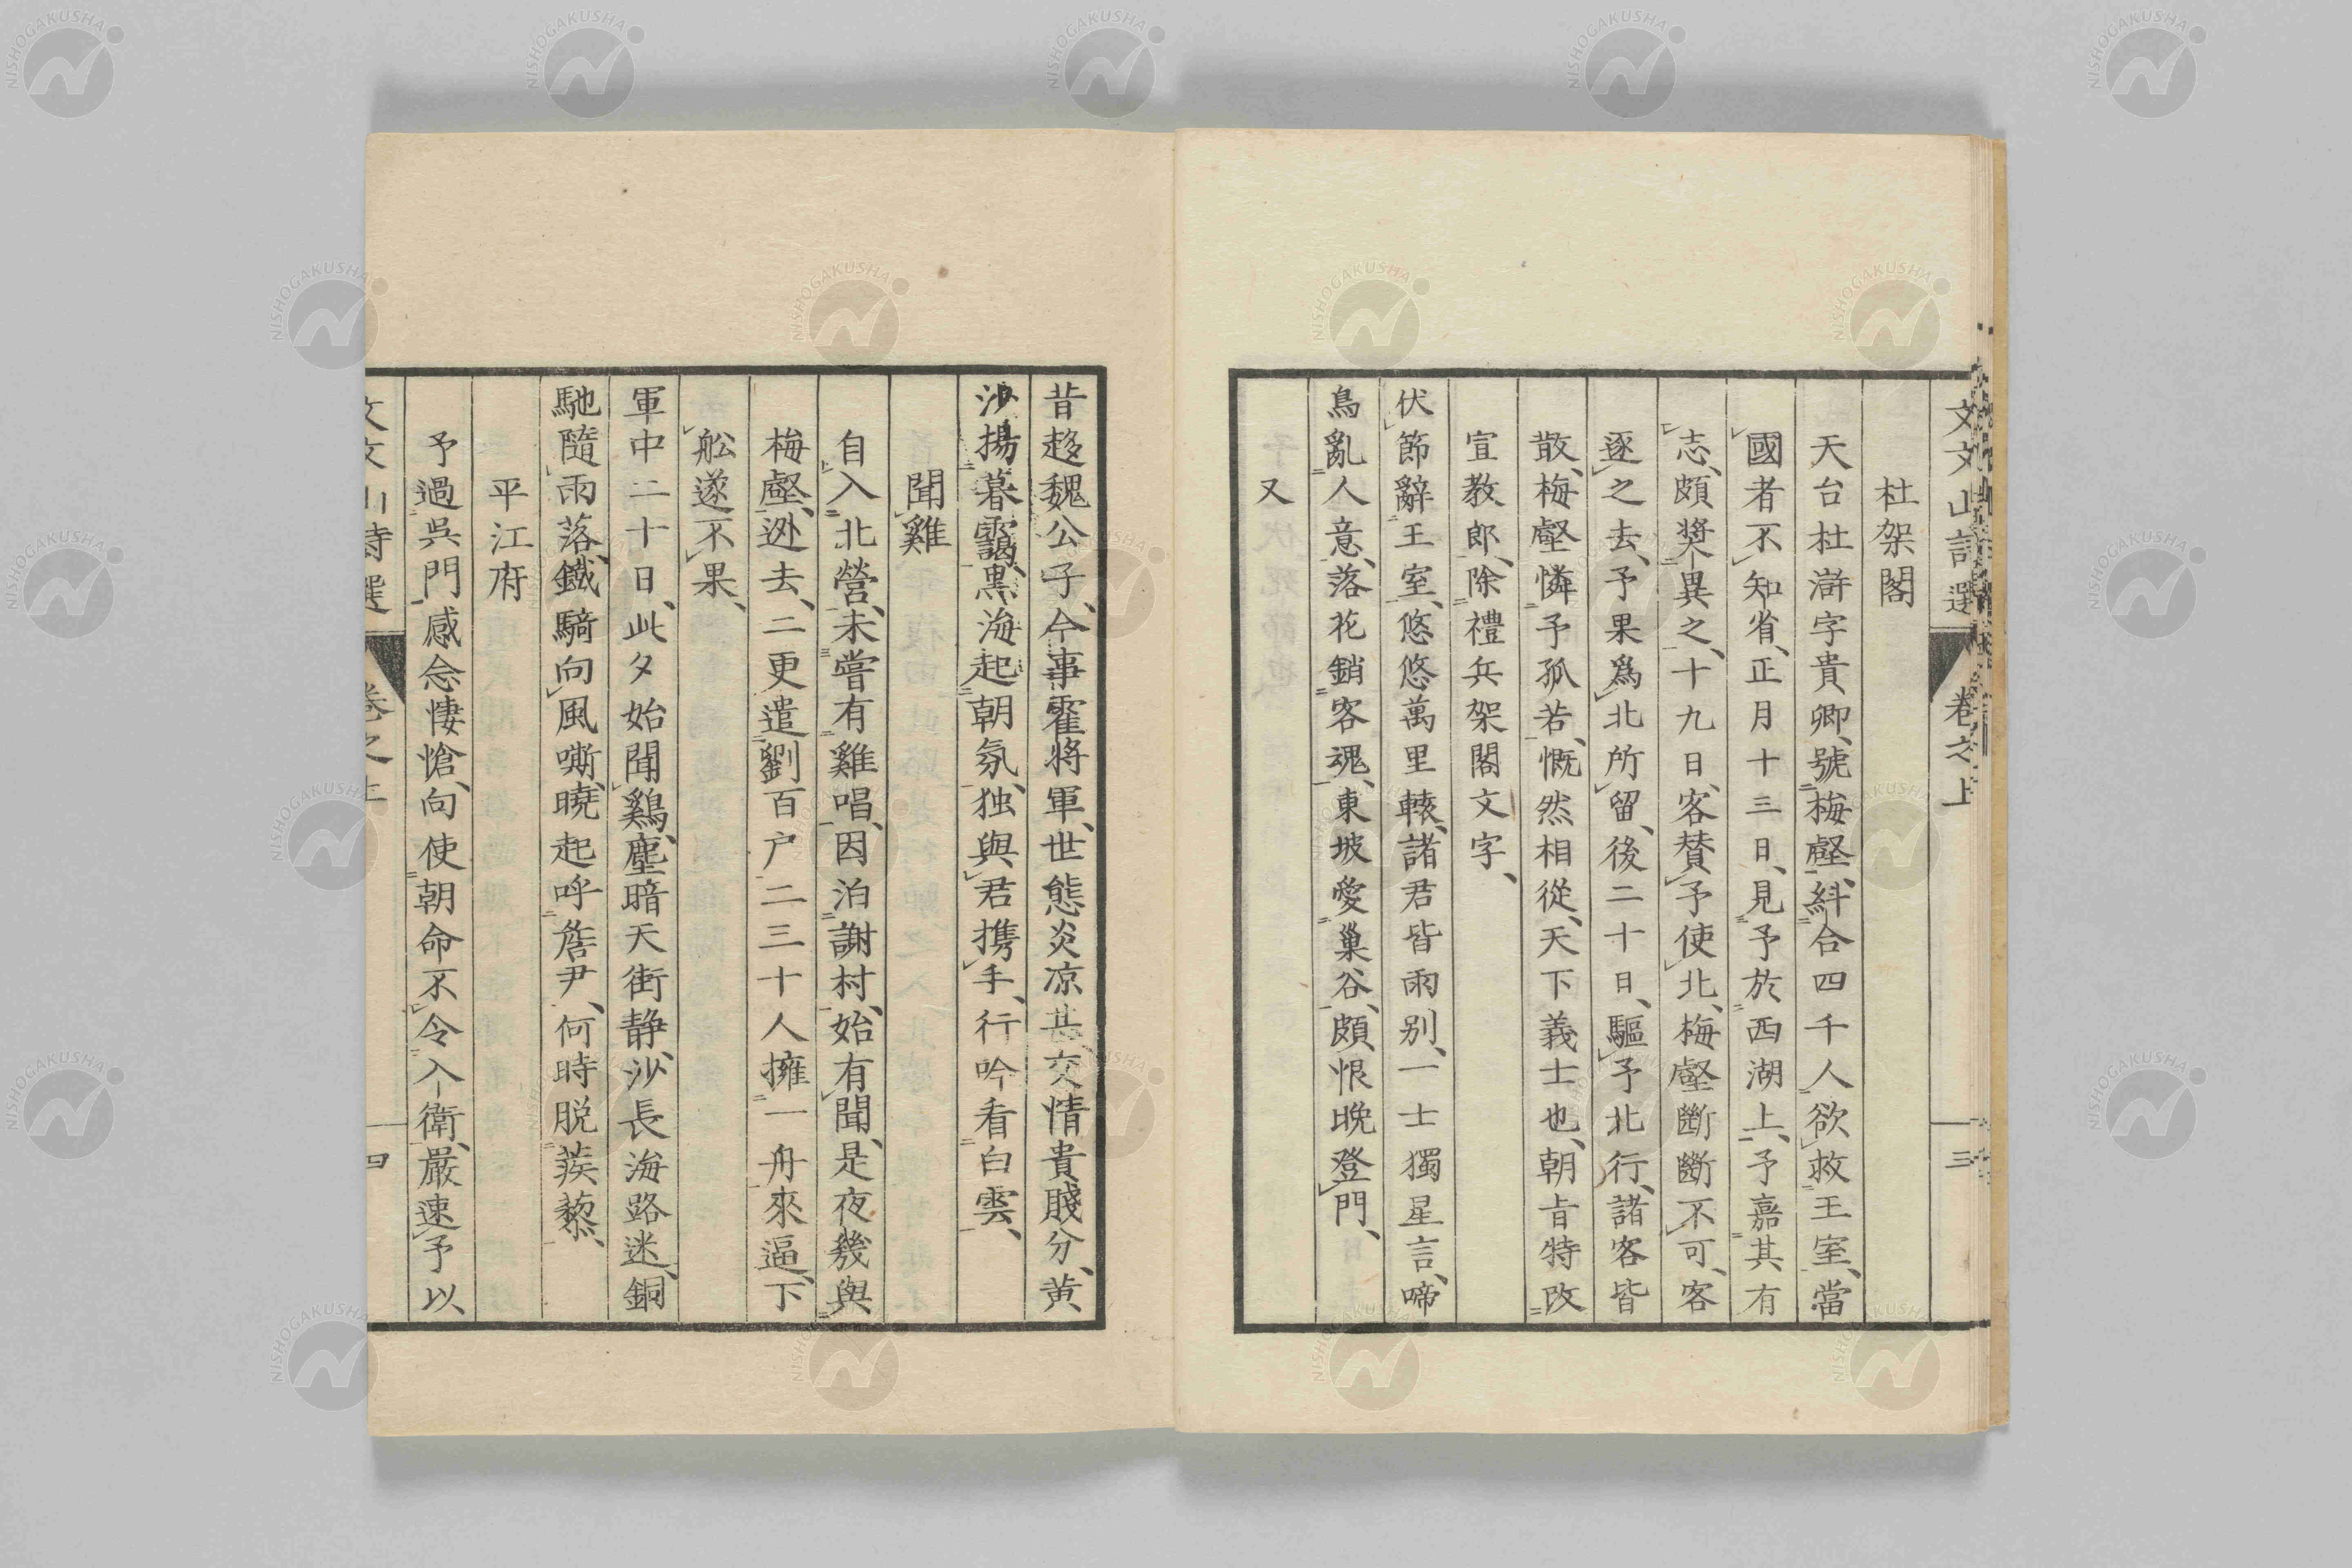 文文山詩選 卷之上 三
杜架閣
天台杜滸字貴卿、號梅壑、糾合四千人、欲救王室、當
國者不知省、正月十三日、見予於西湖上、予嘉其有
志、頗奬異之、十九日、客賛予使北、梅壑斷斷不可、客
逐之去、予果爲北所留、後二十日、驅予北行、諸客皆
散、梅壑憐予孤苦、慨然相從、天下義士也、朝旨特改
宣教郎、除禮兵架閣文字、
伏節辭王室、悠悠萬里轅、諸君皆雨別、一士獨星言、啼
鳥亂人意、落花銷客魂、東坡愛巢谷、頗恨晩登門、
又
昔趍魏公子、今事霍將軍、世態炎凉甚、交情貴賤分、黄
沙揚暮靄、黒海起朝氛、独與君携手、行吟看白雲、
聞雞
自入北營、未嘗有雞唱、因泊謝村、始有聞、是夜幾與
梅壑逃去、二更遣劉百户二三十人擁一舟來逼、下
舩遂不果、
軍中二十日、此夕始聞鷄、塵暗天街静、沙長海路迷、銅
馳隨雨落、鐵騎向風嘶、曉起呼詹尹、何時脱蒺藜、
平江府
予過吳門、感念悽愴、向使朝命不令入衛、嚴速予以
文文山詩選 卷之上 四